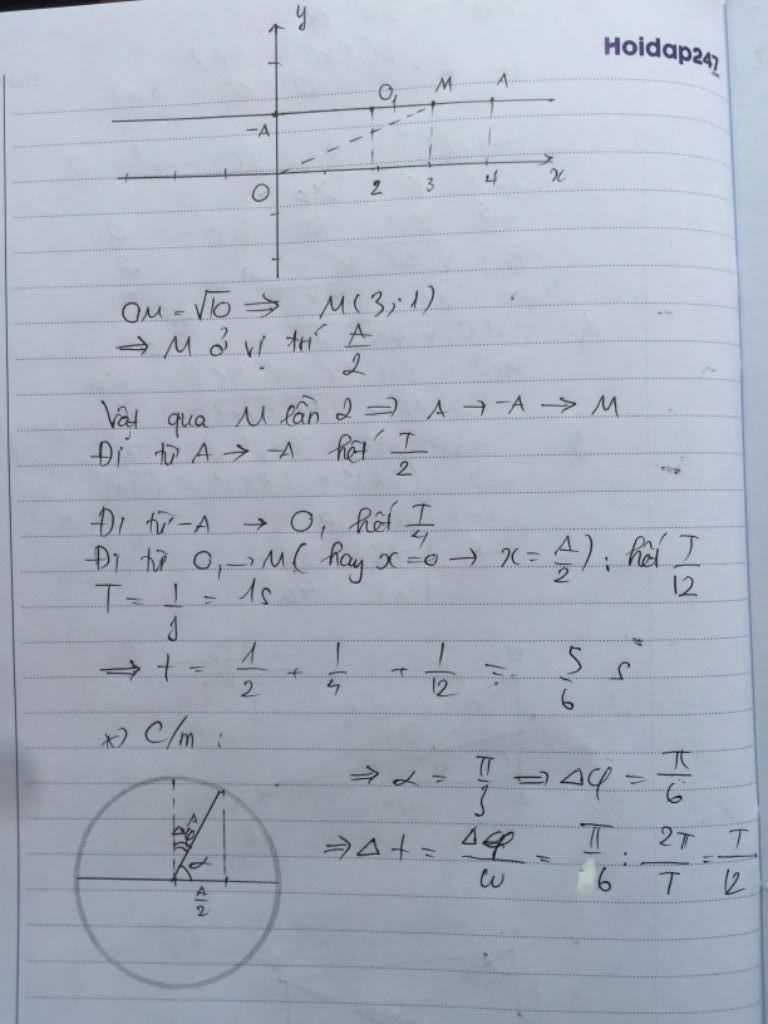 Hoidap247
y
O₁ M A
-A
O 2 3 4 x
OM = √10 ⇒ M(3; 1)
⇒ M ở vị trí A/2
Vật qua M lần 2 ⇒ A → -A → M
Đi từ A → -A hết T/2
Đi từ -A → O₁ hết T/4
Đi từ O₁ → M ( hay x=0 → x = A/2 ) : hết T/12
T = 1/f = 1s
⇒ t = 1/2 + 1/4 + 1/12 = 5/6 s
*) C/m :
⇒ α = π/3 ⇒ Δφ = π/6
⇒ Δt = Δφ/ω = π/6 : 2π/T = T/12
Δφ
α
A/2